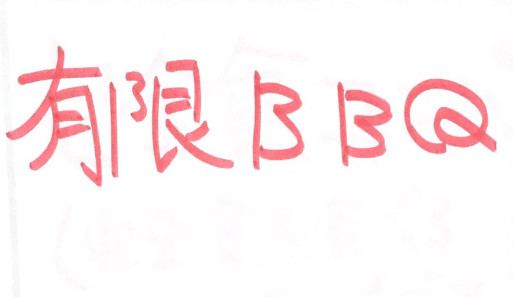 有限BBQ